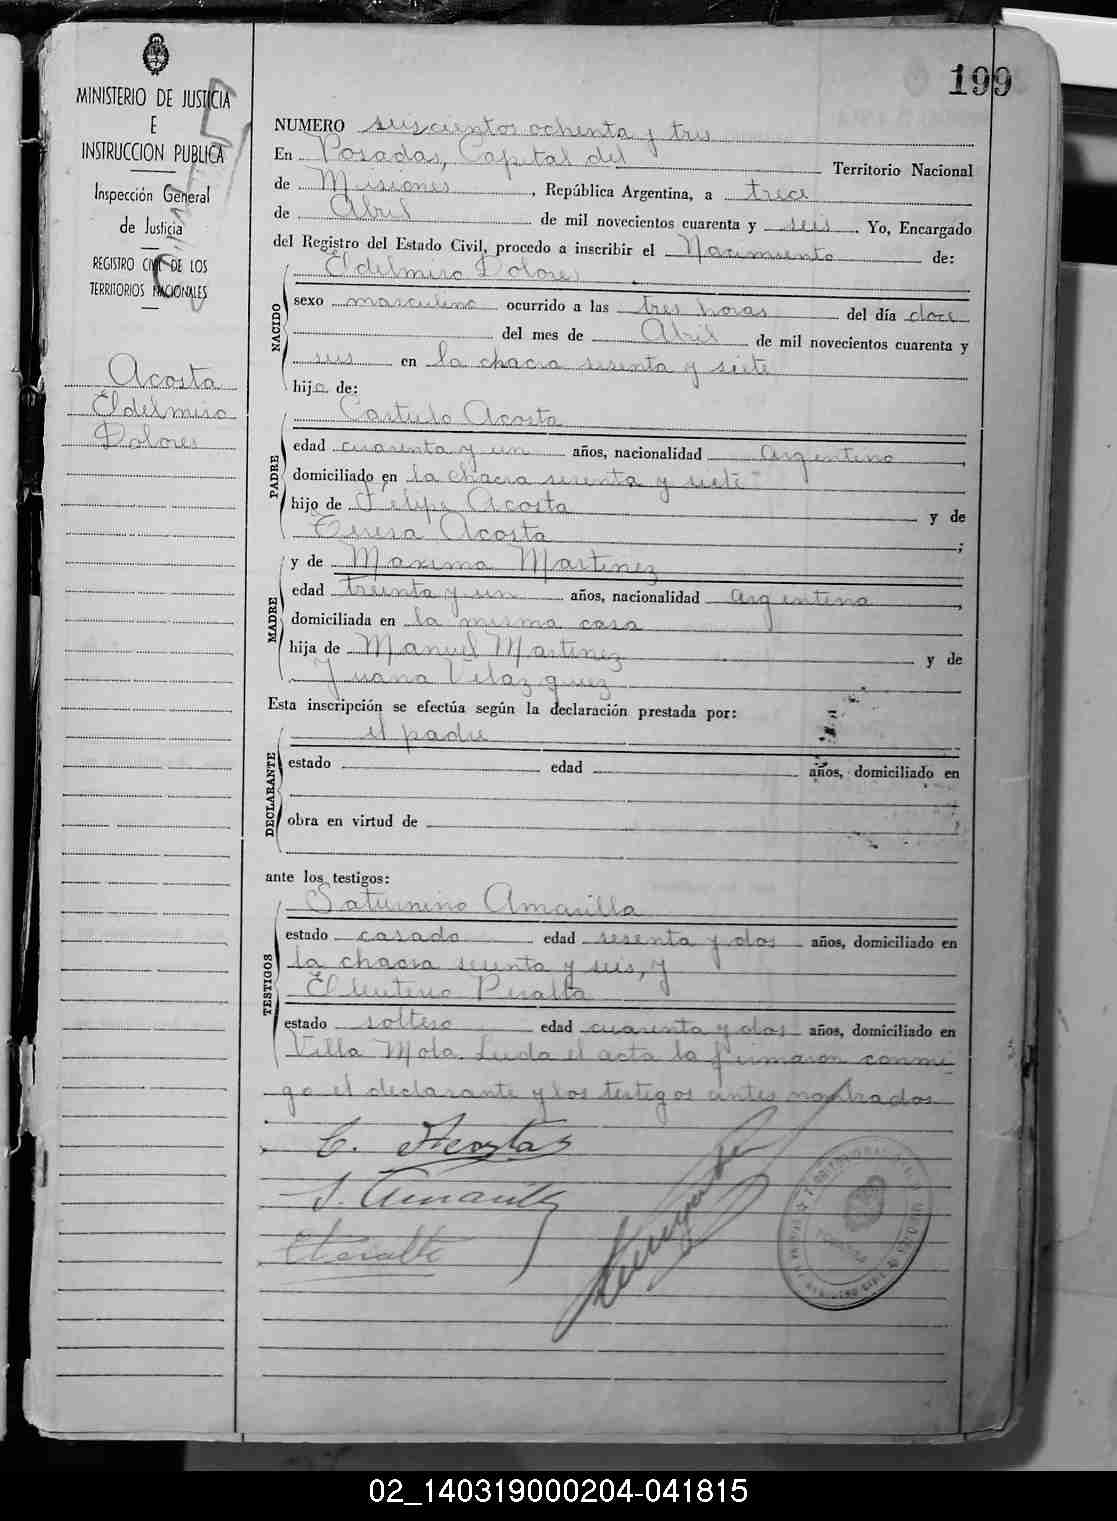 199
MINISTERIO DE JUSTICIA
E
INSTRUCCION PUBLICA
Inspección General
de Justicia
REGISTRO CIVIL DE LOS
TERRITORIOS NACIONALES
Acosta
Eldelmiro
Dolores
NUMERO seiscientos ochenta y tres
En Posadas, Capital del Territorio Nacional
de Misiones, República Argentina, a trece
de Abril de mil novecientos cuarenta y seis. Yo, Encargado
del Registro del Estado Civil, procedo a inscribir el Nacimiento de:
Eldelmiro Dolores
NACIDO
sexo masculino ocurrido a las tres horas del día doce
del mes de Abril de mil novecientos cuarenta y
seis en la chacra sesenta y siete
hijo de:
Castulo Acosta
PADRE
edad cuarenta y un años, nacionalidad Argentino,
domiciliado en la chacra sesenta y siete
hijo de Felipe Acosta y de
Teresa Acosta;
y de Maxima Martinez
MADRE
edad treinta y un años, nacionalidad argentina,
domiciliada en la misma casa
hija de Manuel Martinez y de
Juana Velazquez
Esta inscripción se efectúa según la declaración prestada por:
el padre
DECLARANTE
estado edad años, domiciliado en
obra en virtud de
ante los testigos:
Saturnino Amarilla
TESTIGOS
estado casado edad sesenta y dos años, domiciliado en
la chacra sesenta y seis, y
Eleuterio Peralta
estado soltero edad cuarenta y dos años, domiciliado en
Villa Mola. Leida el acta la firmaron conmi-
go el declarante y los testigos antes nombrados
C. Acosta
S. Amarilla
E Peralta
02_140319000204-041815